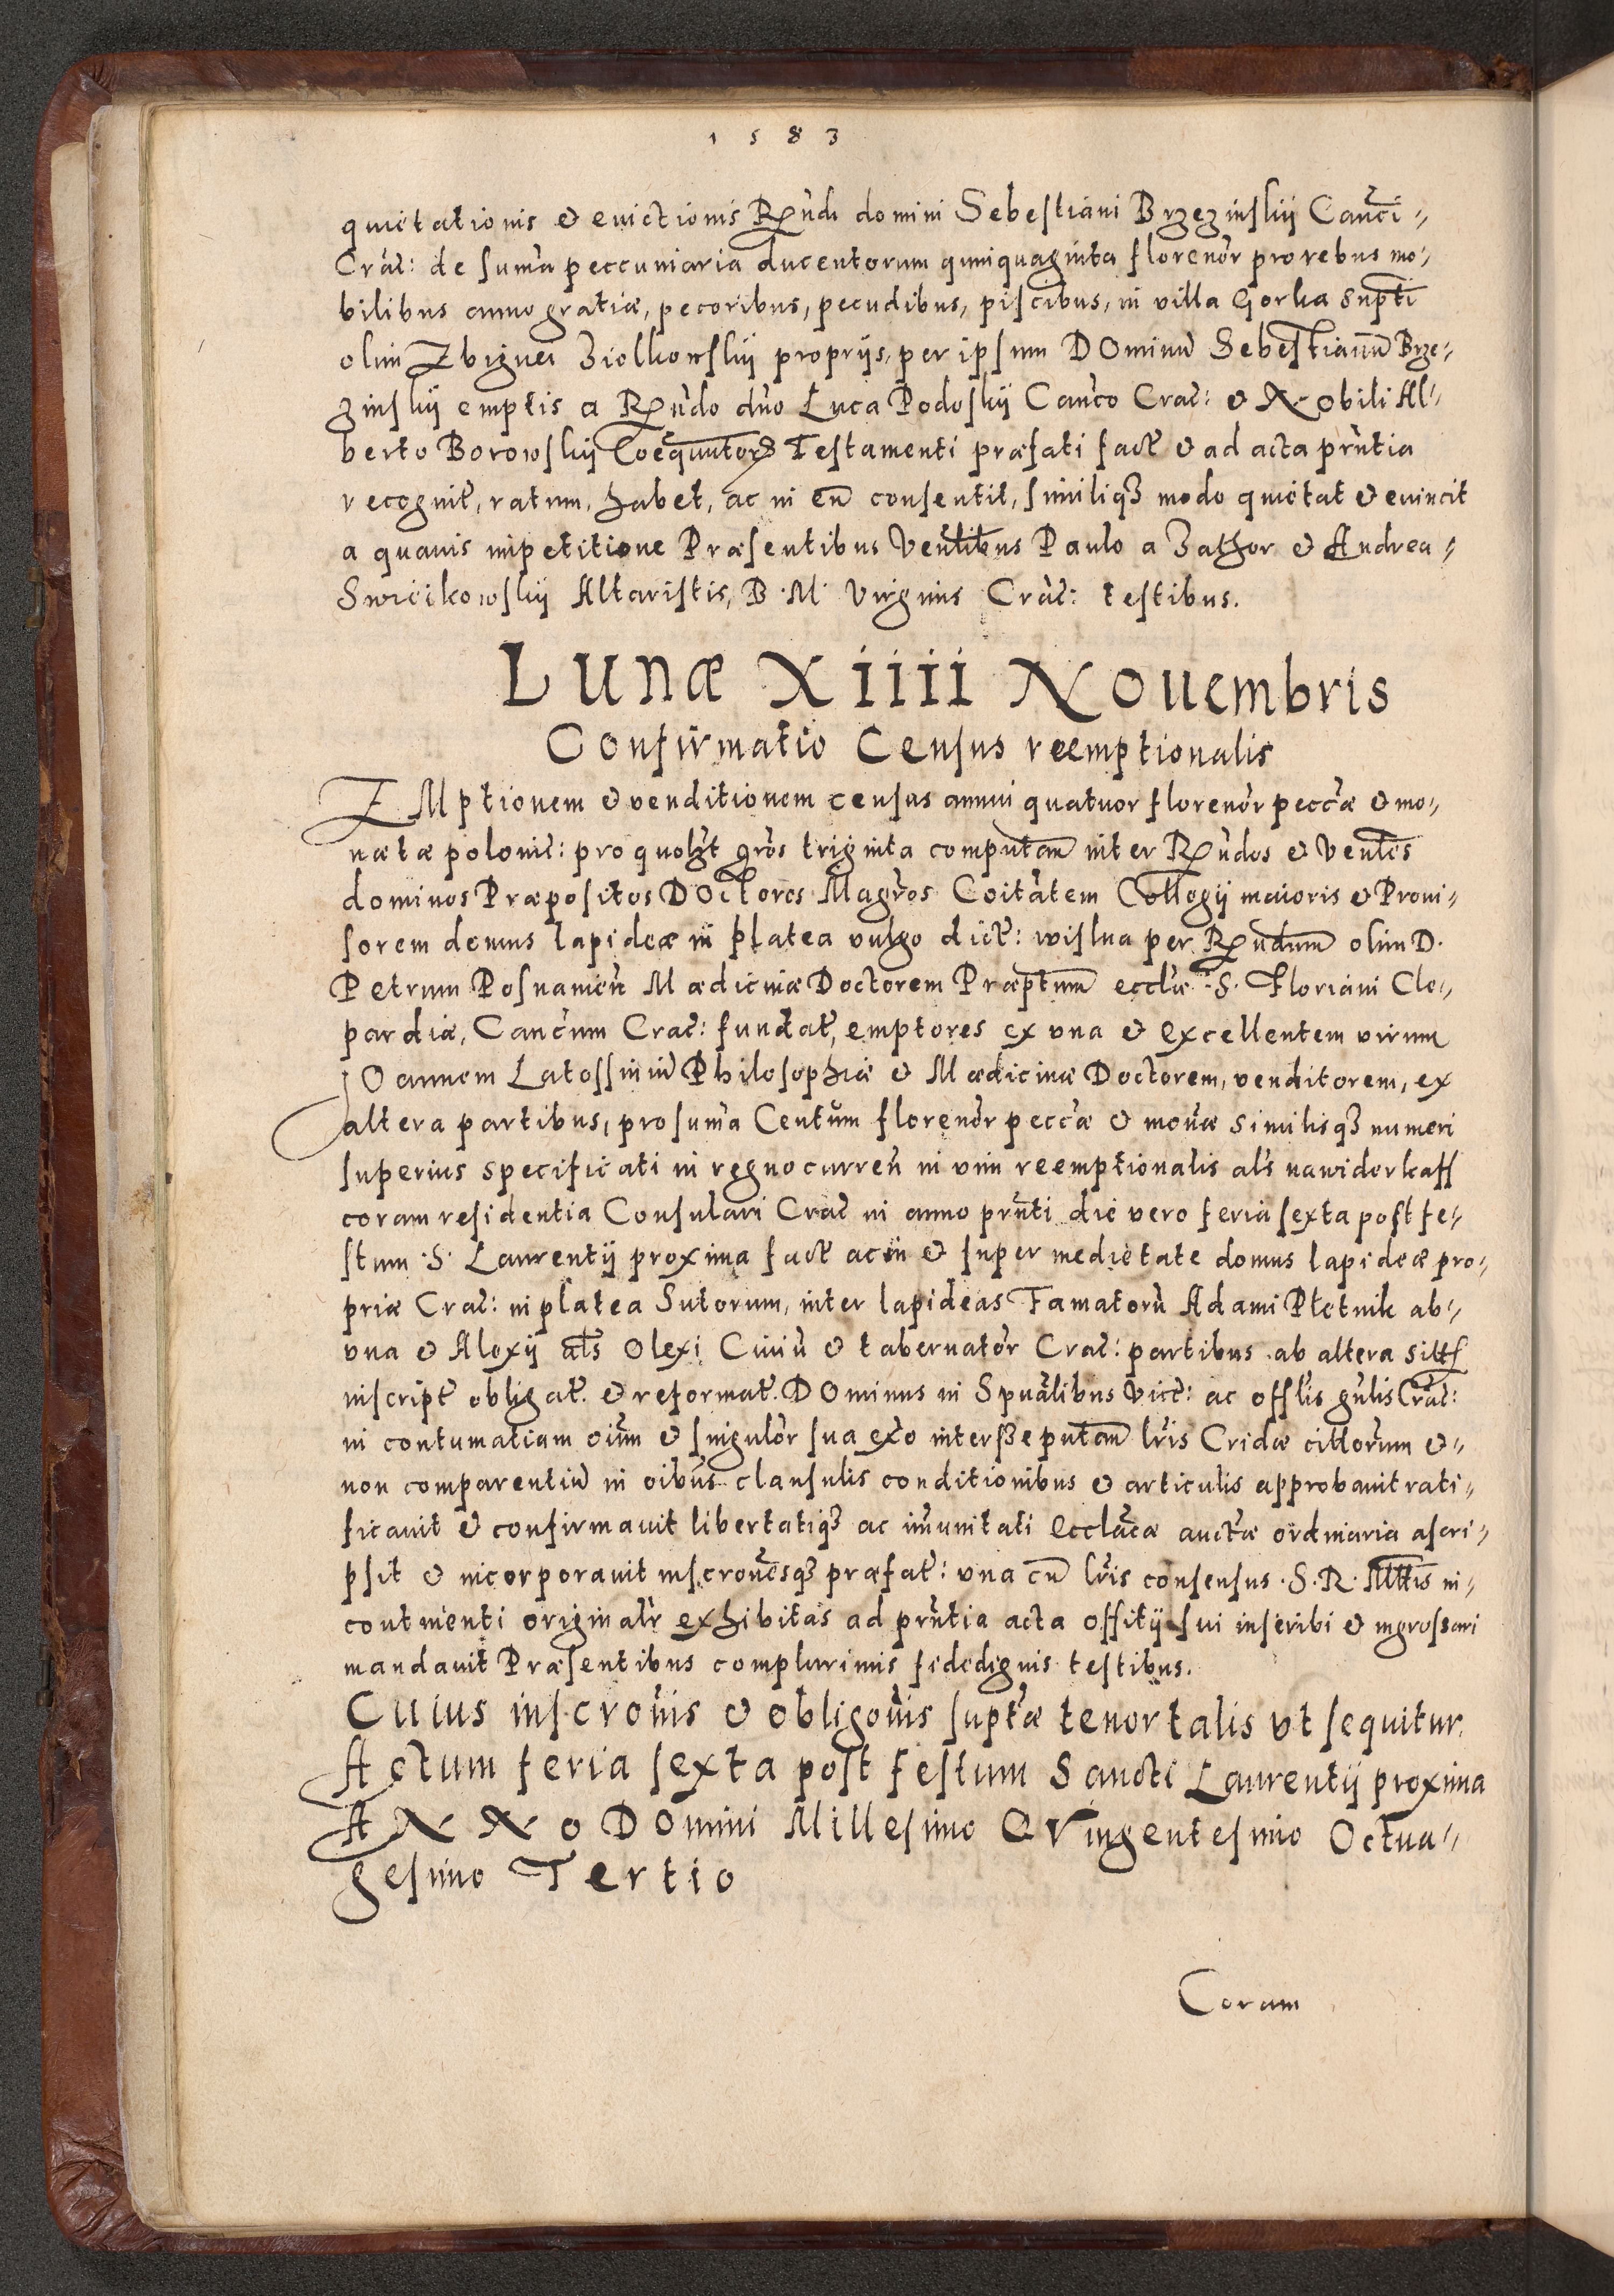 1583
quietationis & euictionis Rndi domini Sebestiani Brzezinskij Canci
Crac: de suma peccuniaria ducentorum quinquaginta florenor pro rebus mo-
bilibus anno gratiæ, pecoribus, pecudibus, piscibus, in villa Gorka supti
olim Zbignei Ziolkowskij proprijs, per ipsum DOminu Sebestianum Brze-
zinskij emptis a Rndo dno Luca Podoskij Canco Crac: & Nobili Al-
berto Borowskij Coequutors Testamenti præfati fact & ad acta prntia
recognit, ratum, habet, ac in eu consentit, similiq3 modo quietat & euincit
a quauis impetitione Præsentibus Ventibus Paulo a Zathor & Andrea
Swiëikowskij Altaristis, B. M. Virginis Crac: testibus.
LUNæ Xiiii NOuembris
Confirmatio Census reemptionalis
EMptionem & venditionem census annui quatuor florenor peccæ & mo-
nætæ polonic: pro quolzt gros triginta computan inter Rndos & Ventes
dominos Præpositos DOctores Magros Coitatem Collegij maioris & Proui-
sorem domus lapideæ in platea vulgo dict: wislna per Rndum olim D.
Petrum Posnanien Mædicinæ Doctorem Præptum ecclæ .S. Floriani Cle-
pardiæ, Cancum Crac: fundat, emptores ex vna & excellentem virum
JOannem Latossiniu Philosophiæ & Mædicinæ Doctorem, venditorem, ex
altera partibus, pro suma Centum florenor peccæ & monæ similisq3 numeri
superius specificati in regno curren in vim reemptionalis als nawiderkaff
coram residentia Consulari Crac in anno prnti die vero feria sexta post fe-
stum .S. Laurentij proxima fact ac in & super medietate domus lapideæ pro-
priæ Crac: in platea Sutorum, inter lapideas Famatoru Adami Pletnik ab-
vna & Alexij als Olexi Ciuiu & tabernator Crac: partibus ab altera sitt
inscript obligat. & reformat. DOminus in Spualibus Vict: ac offlis gnlis Crac:
in contumatiam oium & singulor sua exo interesse putan lris Cridæ cittorum &
non comparentiu in oibus clausulis conditionibus & articulis approbauit rati-
ficauit & confirmauit libertatiq3 ac imunitati Ecclacæ auctæ ordinaria ascri-
psit & incorporauit inscronesq3 præfat: vna cu lris consensus .S. R. Mttis in-
continenti originalr exhibitas ad prntia acta offitij sui inscribi & ingrossari
mandauit Præsentibus complurimis fidedignis testibus.
Cuius inscronis & obligonis suptæ tenor talis vt sequitur.
Actum feria sexta post festum Sancti Laurentij proxima
ANNo DOmini Millesimo QVingentesimo Octua-
gesimo Tertio
Coram